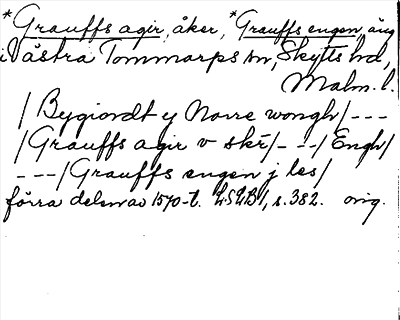 *Grauffs agir, åker, *Grauffs engen, äng
i Västra Tommarps sn, Skytts hd,
Malm. l.
/Bygiordt y Norre wongh/---
/Grauffs agir v skr̄/---/Engh/
---/Grauffs engen j les/
förra delen av 1570-t. LSLB 1, s. 382. orig.